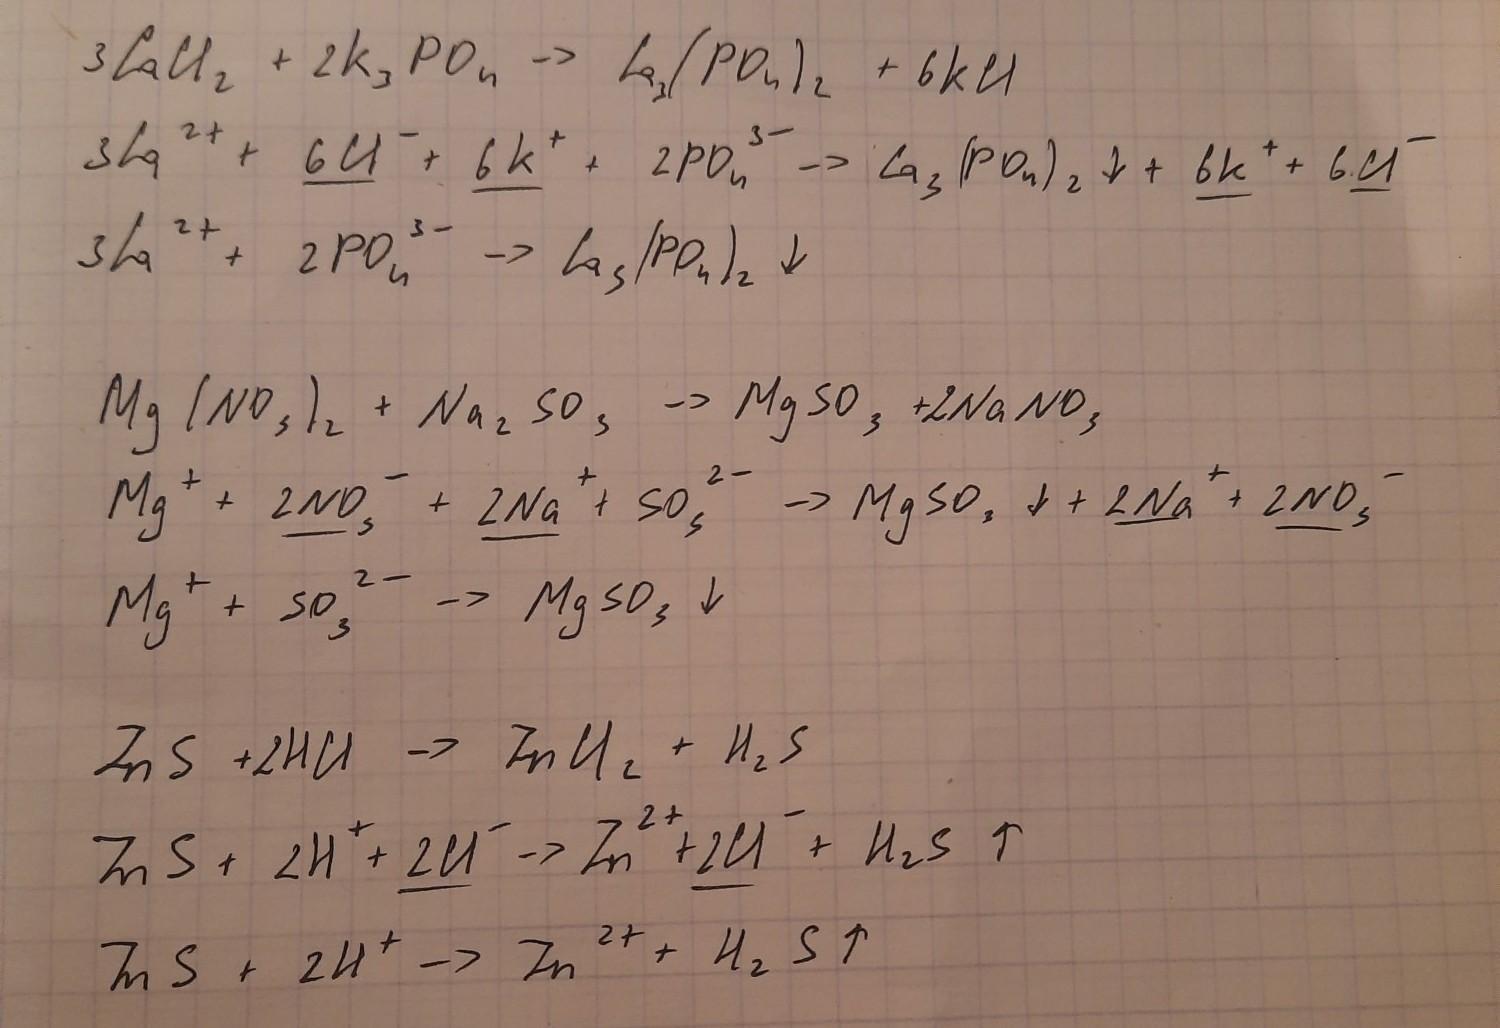 3CaCl₂ + 2K₃PO₄ -> Ca₃(PO₄)₂ + 6KCl
3Ca²⁺ + 6Cl⁻ + 6K⁺ + 2PO₄³⁻ -> Ca₃(PO₄)₂↓ + 6K⁺ + 6Cl⁻
3Ca²⁺ + 2PO₄³⁻ -> Ca₃(PO₄)₂↓
Mg(NO₃)₂ + Na₂SO₃ -> MgSO₃ + 2NaNO₃
Mg⁺ + 2NO₃⁻ + 2Na⁺ + SO₃²⁻ -> MgSO₃↓ + 2Na⁺ + 2NO₃⁻
Mg⁺ + SO₃²⁻ -> MgSO₃↓
ZnS + 2HCl -> ZnCl₂ + H₂S
ZnS + 2H⁺ + 2Cl⁻ -> Zn²⁺ + 2Cl⁻ + H₂S↑
ZnS + 2H⁺ -> Zn²⁺ + H₂S↑